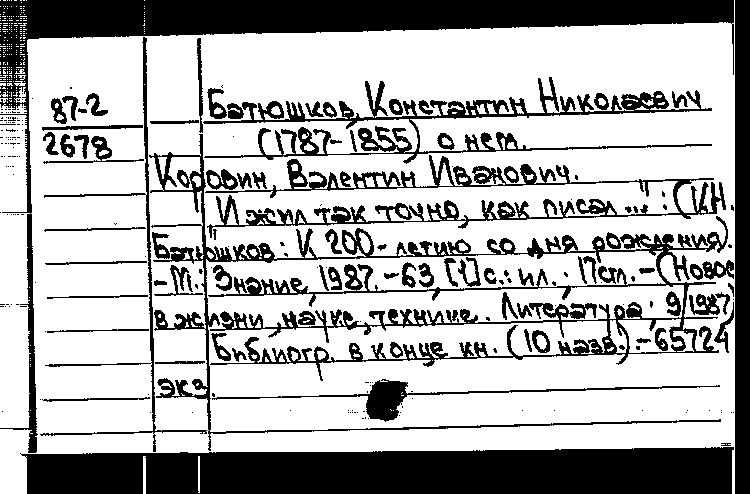 87-2
2678
Батюшков, Константин Николаевич
(1787-1855) о нем.
Коровин, Валентин Иванович.
"И жил так точно, как писал...": (К.Н.
Батюшков: К 200-летию со дня рождения).
-М.: Знание, 1987.-63, [1]с.: ил.; 17см.-(Новое
в жизни, науке, технике. Литература; 9/1987)
Библиогр. в конце кн. (10 назв.).-65724
экз.